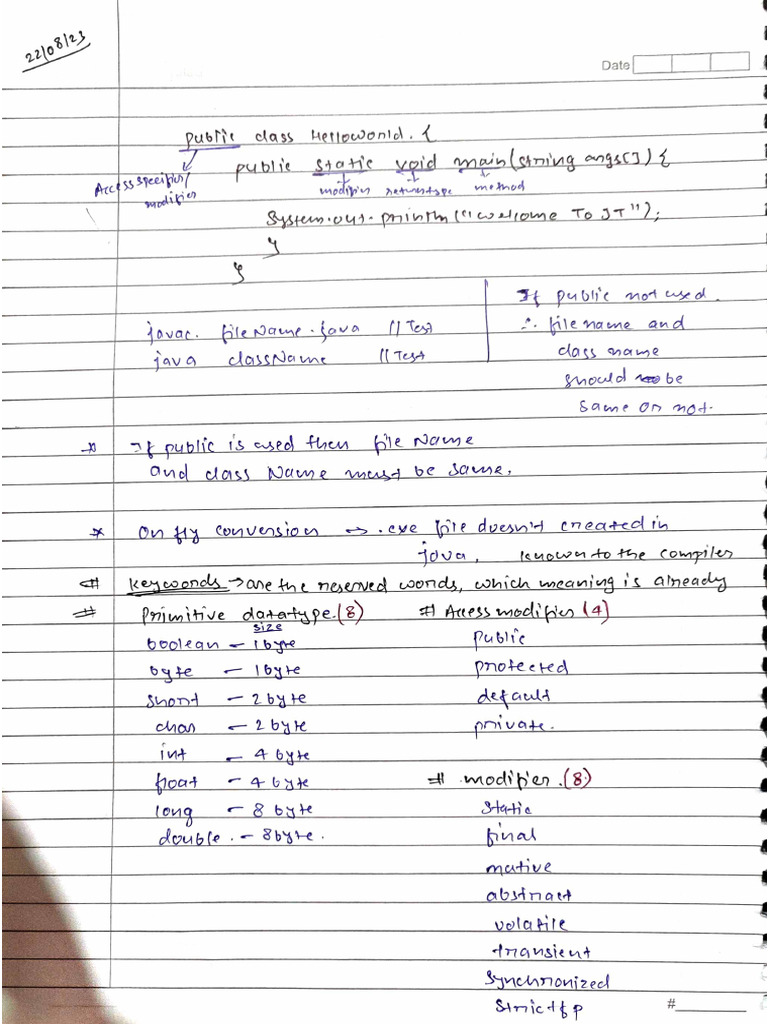 22/08/23
Date
public class Helloworld. {
Access specifier/
modifier
public static void main(string args[]) {
modifier returntype method
System.out.println("welcome To JT");
}
}
javac. fileName.java //Test
java className //Test
If public not used.
∴ file name and
class name
should be
same or not.
* If public is used then file Name
and class Name must be same.
* On fly conversion → .exe file doesn't created in
java.
# keywords → are the reserved words, which meaning is already
known to the compiler
# Primitive datatype. (8)
size
boolean - 1 byte
byte - 1 byte
short - 2 byte
char - 2 byte
int - 4 byte
float - 4 byte
long - 8 byte
double. - 8byte.
# Access modifier (4)
public
protected
default
private.
# modifier. (8)
static
final
native
abstract
volatile
transient
synchronized
strictfp
#